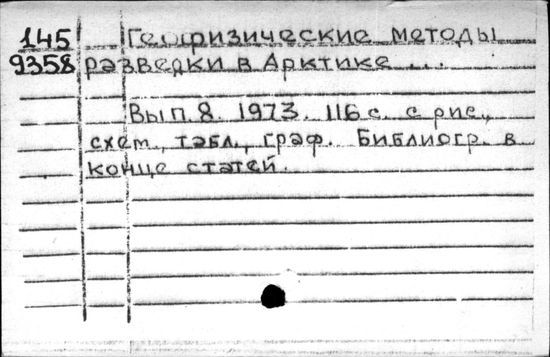 145 Геофизические методы
9358 разведки в Арктике ...
Вып. 8. 1973. 116 с. с рис.,
схем., табл., граф. Библиогр. в
конце статей.